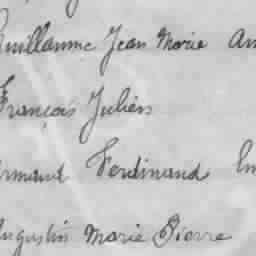 Guillaume Jean Marie
François Julien
Armand Ferdinand
Augustin Marie Pierre